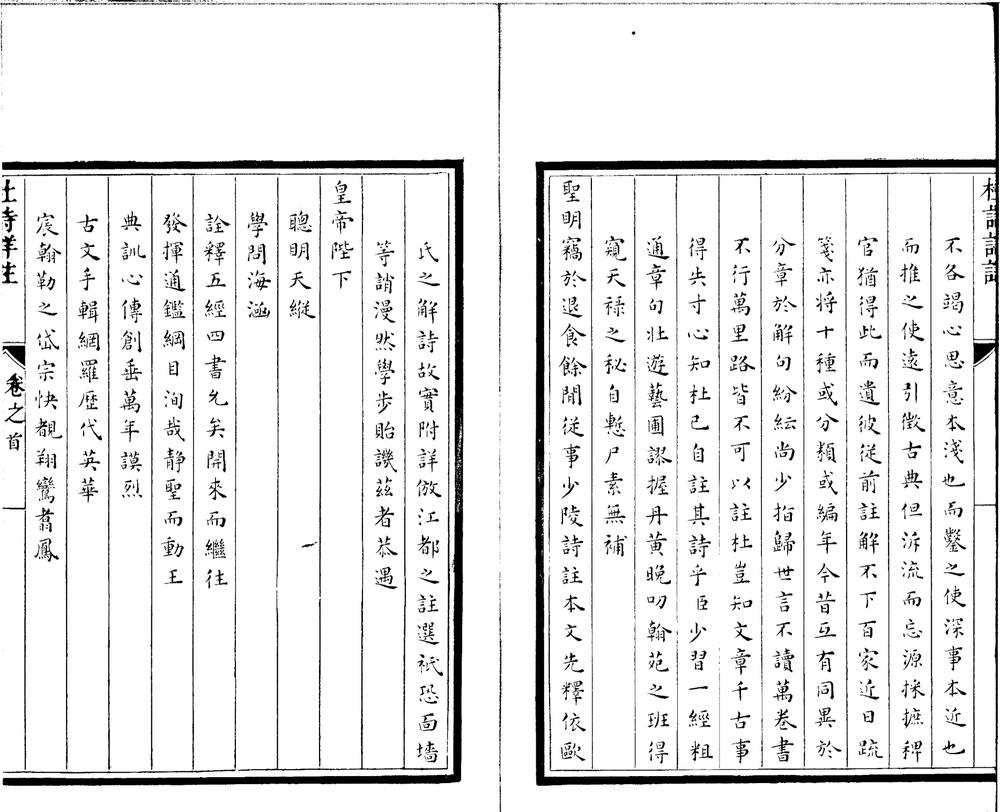 不各竭心思意本淺也而鑿之使深事本近也
而推之使遠引徵古典但泝流而忘源採摭稗
官猶得此而遺彼從前註解不下百家近日疏
箋亦將十種或分類或編年今昔互有同異於
分章於解句紛紜尚少指歸世言不讀萬卷書
不行萬里路皆不可以註杜豈知文章千古事
得失寸心知杜已自註其詩乎臣少習一經粗
通章句壯遊藝圃謬握丹黃晚叨翰苑之班得
窺天祿之秘自慙尸素無補
聖明竊於退食餘閒從事少陵詩註本文先釋依歐
氏之解詩故實附詳倣江都之註選祇恐面墻
等誚漫然學步貽譏茲者恭遇
皇帝陛下
聰明天縱
學問海涵
詮釋五經四書允矣開來而繼往
發揮通鑑綱目洵哉靜聖而動王
典訓心傳創垂萬年謨烈
古文手輯網羅歷代英華
宸翰勒之岱宗快覩翔鸞翥鳳
卷之首